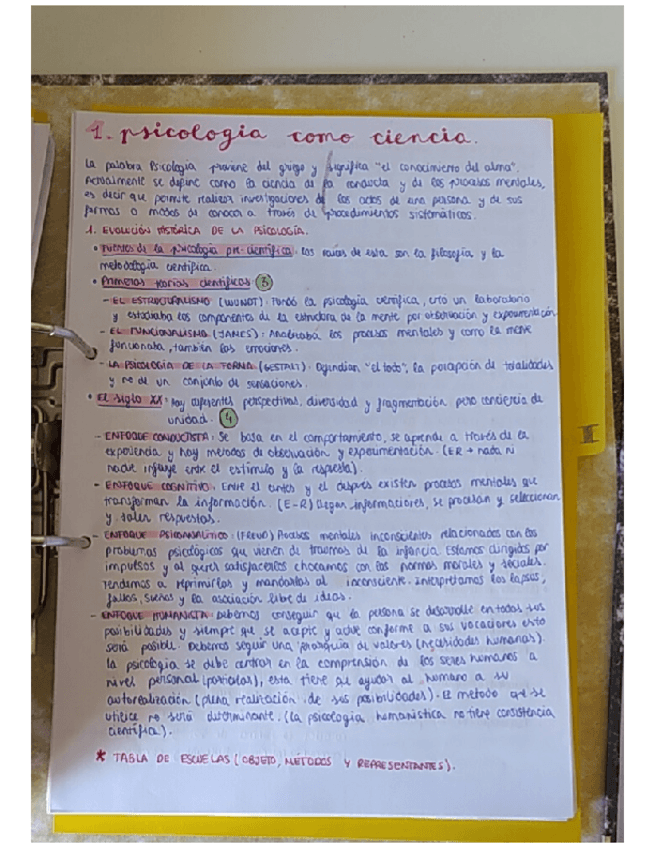 1. psicología como ciencia.
La palabra Psicología proviene del griego y significa "el conocimiento del alma".
Actualmente se define como la ciencia de la conducta y de los procesos mentales,
es decir que permite realizar investigaciones de los actos de una persona y de sus
formas o modos de conocer a través de procedimientos sistemáticos.
1. EVOLUCIÓN HISTÓRICA DE LA PSICOLOGÍA.
• Fuentes de la psicología pre-científica: las raíces de esta son la filosofía y la
metodología científica.
• Primeras teorías científicas (3)
- EL ESTRUCTURALISMO (WUNDT): Fundó la psicología científica, creó un laboratorio
y estudiaba los componentes de la estructura de la mente por observación y experimentación.
- EL FUNCIONALISMO (JAMES): Analizaba los procesos mentales y como la mente
funcionaba, también las emociones.
- LA PSICOLOGÍA DE LA FORMA (GESTALT): Defendían "el todo", la percepción de totalidades
y no de un conjunto de sensaciones.
• El siglo XX: Hay diferentes perspectivas, diversidad y fragmentación pero conciencia de
unidad. (4)
- ENFOQUE CONDUCTISTA: Se basa en el comportamiento, se aprende a través de la
experiencia y hay métodos de observación y experimentación. (ER → nada ni
nadie influye entre el estímulo y la respuesta).
- ENFOQUE COGNITIVO: Entre el antes y el después existen procesos mentales que
transforman la información. (E-R) llegan informaciones, se procesan y seleccionan
y salen respuestas.
- ENFOQUE PSICOANALÍTICO: (FREUD) Procesos mentales inconscientes relacionados con los
problemas psicológicos que vienen de traumas de la infancia. Estamos dirigidos por
impulsos y al querer satisfacerlos chocamos con las normas morales y sociales.
Tendemos a reprimirlos y mandarlos al inconsciente. Interpretamos los lapsus,
fallos, sueños y la asociación libre de ideas.
- ENFOQUE HUMANISTA: Debemos conseguir que la persona se desarrolle en todas sus
posibilidades y siempre que se acepte y actúe conforme a sus vocaciones esto
será posible. Debemos seguir una jerarquía de valores (necesidades humanas).
la psicología se debe centrar en la comprensión de los seres humanos a
nivel personal, esta tiene que ayudar al humano a su
autorealización (plena realización de sus posibilidades). El método que se
utilice no será determinante. (la psicología humanística no tiene consistencia
científica).
* TABLA DE ESCUELAS (OBJETO, MÉTODOS Y REPRESENTANTES).